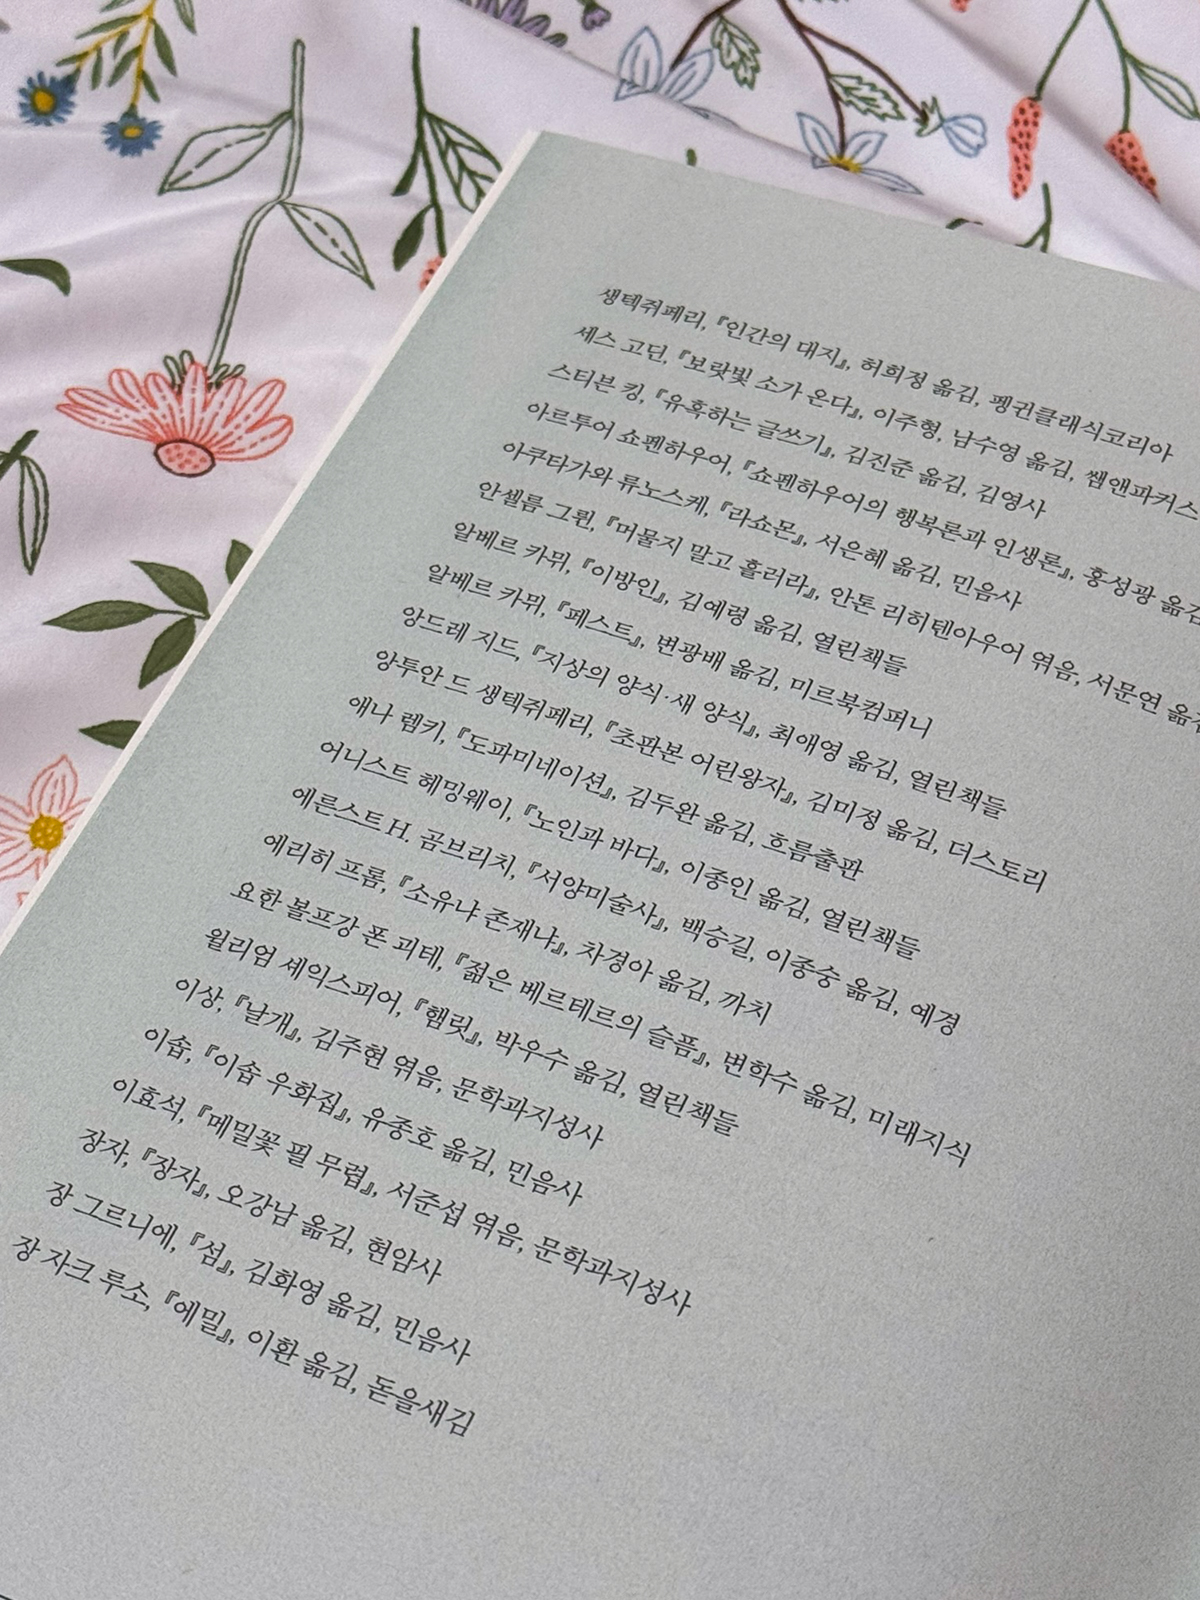 생텍쥐페리, 『인간의 대지』, 허희정 옮김, 펭귄클래식코리아
세스 고딘, 『보랏빛 소가 온다』, 이주형, 남수영 옮김, 쌤앤파커스
스티븐 킹, 『유혹하는 글쓰기』, 김진준 옮김, 김영사
아르투어 쇼펜하우어, 『쇼펜하우어의 행복론과 인생론』, 홍성광 옮김
아쿠타가와 류노스케, 『라쇼몬』, 서은혜 옮김, 민음사
안셀름 그륀, 『머물지 말고 흘러라』, 안톤 리히텐아우어 엮음, 서문연 옮김
알베르 카뮈, 『이방인』, 김예령 옮김, 열린책들
알베르 카뮈, 『페스트』, 변광배 옮김, 미르북컴퍼니
앙드레 지드, 『지상의 양식·새 양식』, 최애영 옮김, 열린책들
앙투안 드 생텍쥐페리, 『초판본 어린왕자』, 김미정 옮김, 더스토리
애나 렘키, 『도파미네이션』, 김두완 옮김, 흐름출판
어니스트 헤밍웨이, 『노인과 바다』, 이종인 옮김, 열린책들
에른스트 H. 곰브리치, 『서양미술사』, 백승길, 이종숭 옮김, 예경
에리히 프롬, 『소유냐 존재냐』, 차경아 옮김, 까치
요한 볼프강 폰 괴테, 『젊은 베르테르의 슬픔』, 변학수 옮김, 미래지식
윌리엄 셰익스피어, 『햄릿』, 박우수 옮김, 열린책들
이상, 『날개』, 김주현 엮음, 문학과지성사
이솝, 『이솝 우화집』, 유종호 옮김, 민음사
이효석, 『메밀꽃 필 무렵』, 서준섭 엮음, 문학과지성사
장자, 『장자』, 오강남 옮김, 현암사
장 그르니에, 『섬』, 김화영 옮김, 민음사
장 자크 루소, 『에밀』, 이환 옮김, 돋을새김